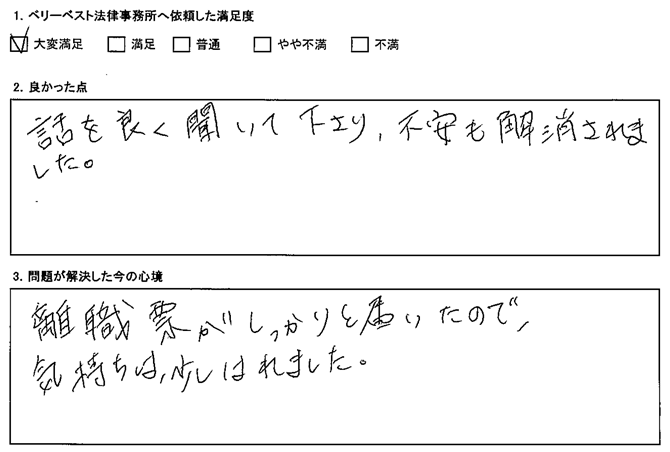 1. ベリーベスト法律事務所へ依頼した満足度
大変満足 満足 普通 やや不満 不満
2. 良かった点
話を良く聞いて下さり、不安も解消されま
した。
3. 問題が解決した今の心境
離職票がしっかりと届いたので、
気持ちは、少しはれました。